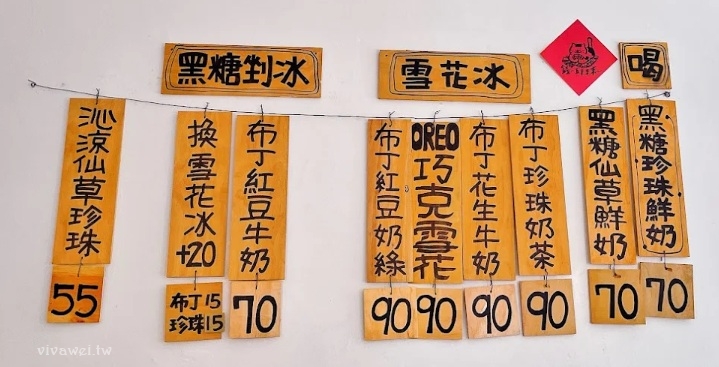 黑糖剉冰
雪花冰
喝
沁涼仙草珍珠
55
換雪花冰+20
布丁15
珍珠15
布丁紅豆牛奶
70
布丁紅豆奶綠
90
OREO巧克雪花
90
布丁花生牛奶
90
布丁珍珠奶茶
90
黑糖仙草鮮奶
70
黑糖珍珠鮮奶
70
vivawei.tw